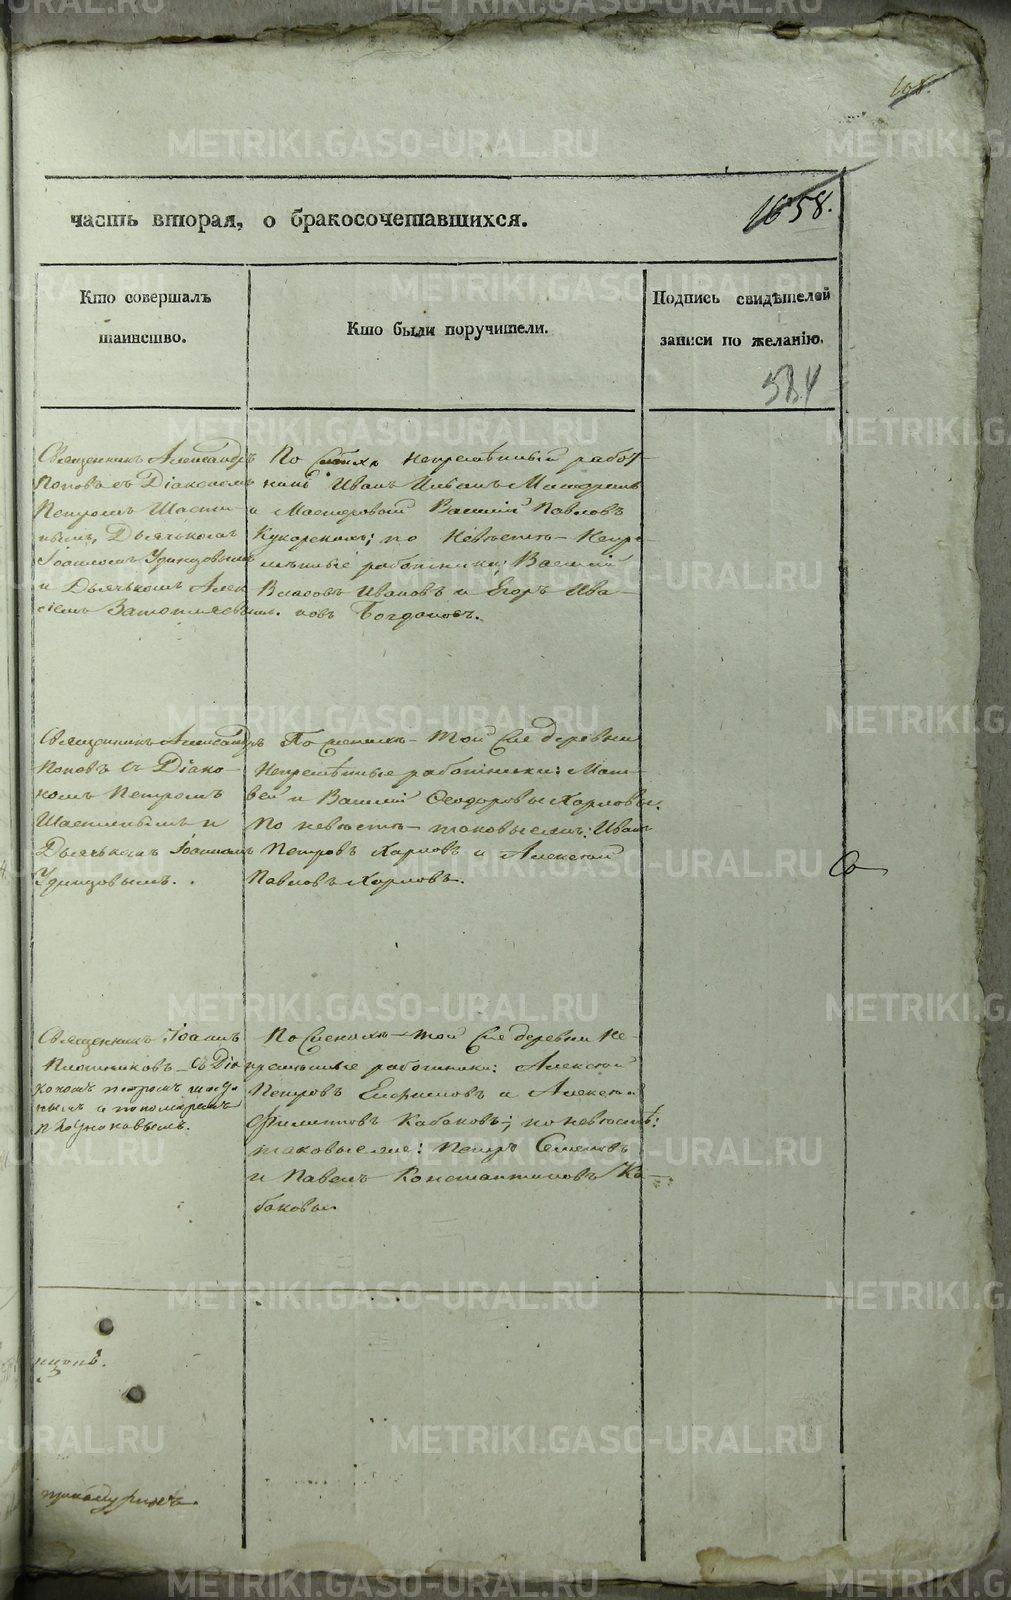 108.
часть вторая, о бракосочетавшихся.
1658.
Кто совершалъ
таинство.
Кто были поручители.
Подпись свидѣтелей
записи по желанію.
584
Священникъ Александръ
Поповъ съ Діакономъ
Петромъ
Дьячькомъ
Іоанномъ Удинцовымъ
и Дьячькомъ Алек
сіемъ
По непремѣнный работ-
никъ Иванъ
и Мастеровой Василій Павловъ
по Невѣстѣ Непре-
мѣнные работники: Василій
Власовъ Ивановъ и Егоръ Ива-
новъ Богдановъ.
Священникъ Александръ
Поповъ съ Діако-
номъ Петромъ
и
Дьячькомъ Іоанномъ
Удинцовымъ.
По женихѣ той же деревни
Непремѣнные работники: Мат-
вей и Василій Ѳеодоровы Харловы.
По невѣстѣ таковыеже: Иванъ
Петровъ Харловъ и Алексѣй
Павловъ Харловъ.
Священникъ Іоаннъ
Плотниковъ съ Діа
кономъ Петромъ
и пономаремъ
По женихѣ той же деревни Не-
премѣнные работники: Алексѣй
Петровъ и Алексѣй
Филиповъ Кабаковъ; по невѣстѣ:
таковыеже: Петръ Семеновъ
и Павелъ Константиновъ Ка-
баковы
METRIKI.GASO-URAL.RU